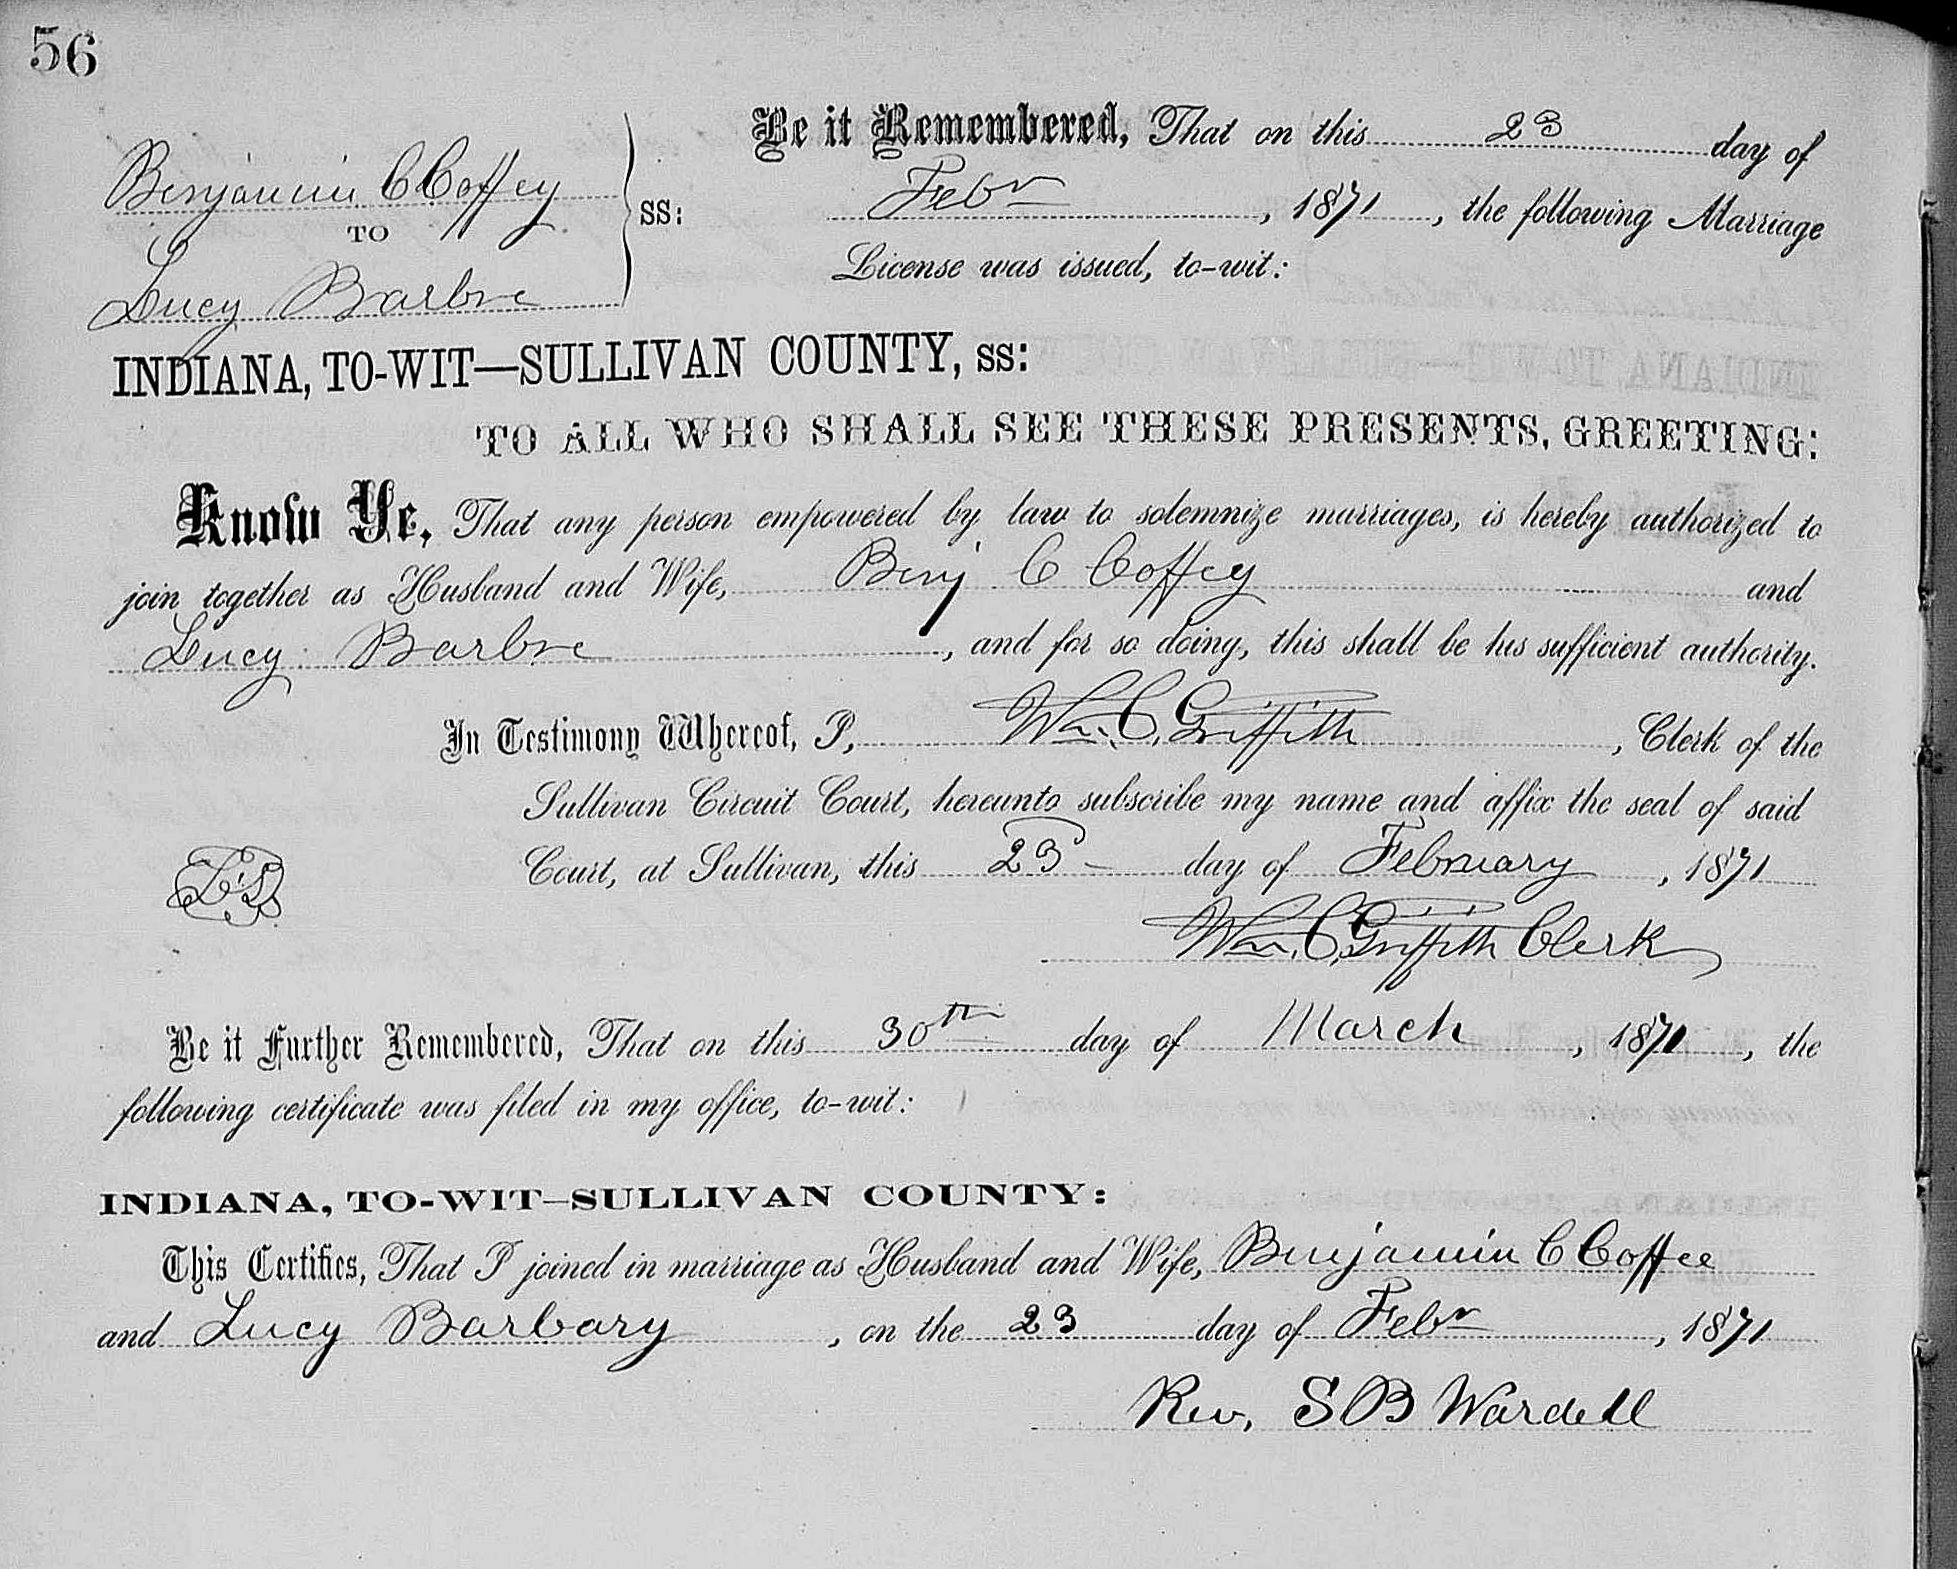 56
Be it Remembered, That on this 23 day of
Benjamin C Coffey
Febr, 1871, the following Marriage
TO
SS:
License was issued, to-wit:
Lucy Barbre
INDIANA, TO-WIT—SULLIVAN COUNTY, SS:
TO ALL WHO SHALL SEE THESE PRESENTS, GREETING:
Know Ye, That any person empowered by law to solemnize marriages, is hereby authorized to
join together as Husband and Wife, Benj C Coffey and
Lucy Barbre, and for so doing, this shall be his sufficient authority.
In Testimony Whereof, I, Wm. C. Griffith, Clerk of the
Sullivan Circuit Court, hereunto subscribe my name and affix the seal of said
Court, at Sullivan, this 23 day of February, 1871
L.S.
Wm. C. Griffith Clerk
Be it Further Remembered, That on this 30th day of March, 1871, the
following certificate was filed in my office, to-wit:
INDIANA, TO-WIT—SULLIVAN COUNTY:
This Certifies, That I joined in marriage as Husband and Wife, Benjamin C Coffee
and Lucy Barbary, on the 23 day of Febr, 1871
Rev. S B Wardell